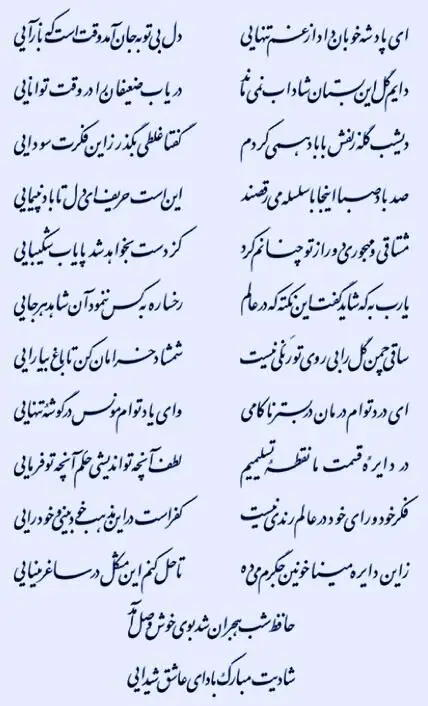 ای پادشه خوبان داد از غم تنهایی دل بی تو به جان آمد وقت است که بازآیی
دایم گل این بستان شاداب نمی‌ماند دریاب ضعیفان را در وقت توانایی
دیشب گله زلفش با باد همی‌کردم گفتا غلطی بگذر زاین فکرت سودایی
صد باد صبا اینجا با سلسله می‌رقصند این است حریف ای دل تا باد نپیمایی
مشتاقی و مهجوری دور از تو چنانم کرد کز دست بخواهد شد پایاب شکیبایی
یارب به که شاید گفت این نکته که در عالم رخساره به کس ننمود آن شاهد هرجایی
ساقی چمن گل را بی روی تو رنگی نیست شمشاد خرامان کن تا باغ بیارایی
ای درد توام درمان در بستر ناکامی وای یاد توام مونس در گوشهٔ تنهایی
در دایرهٔ قسمت ما نقطهٔ تسلیمیم لطف آنچه تو اندیشی حکم آنچه تو فرمایی
فکر خود و رای خود در عالم رندی نیست کفر است در این مذهب خودبینی و خودرایی
زاین دایره مینا خونین جگرم می ده تا حل کنم این مشکل در ساغر مینایی
حافظ شب هجران شد بوی خوش وصل آمد
شادیت مبارک باد ای عاشق شیدایی